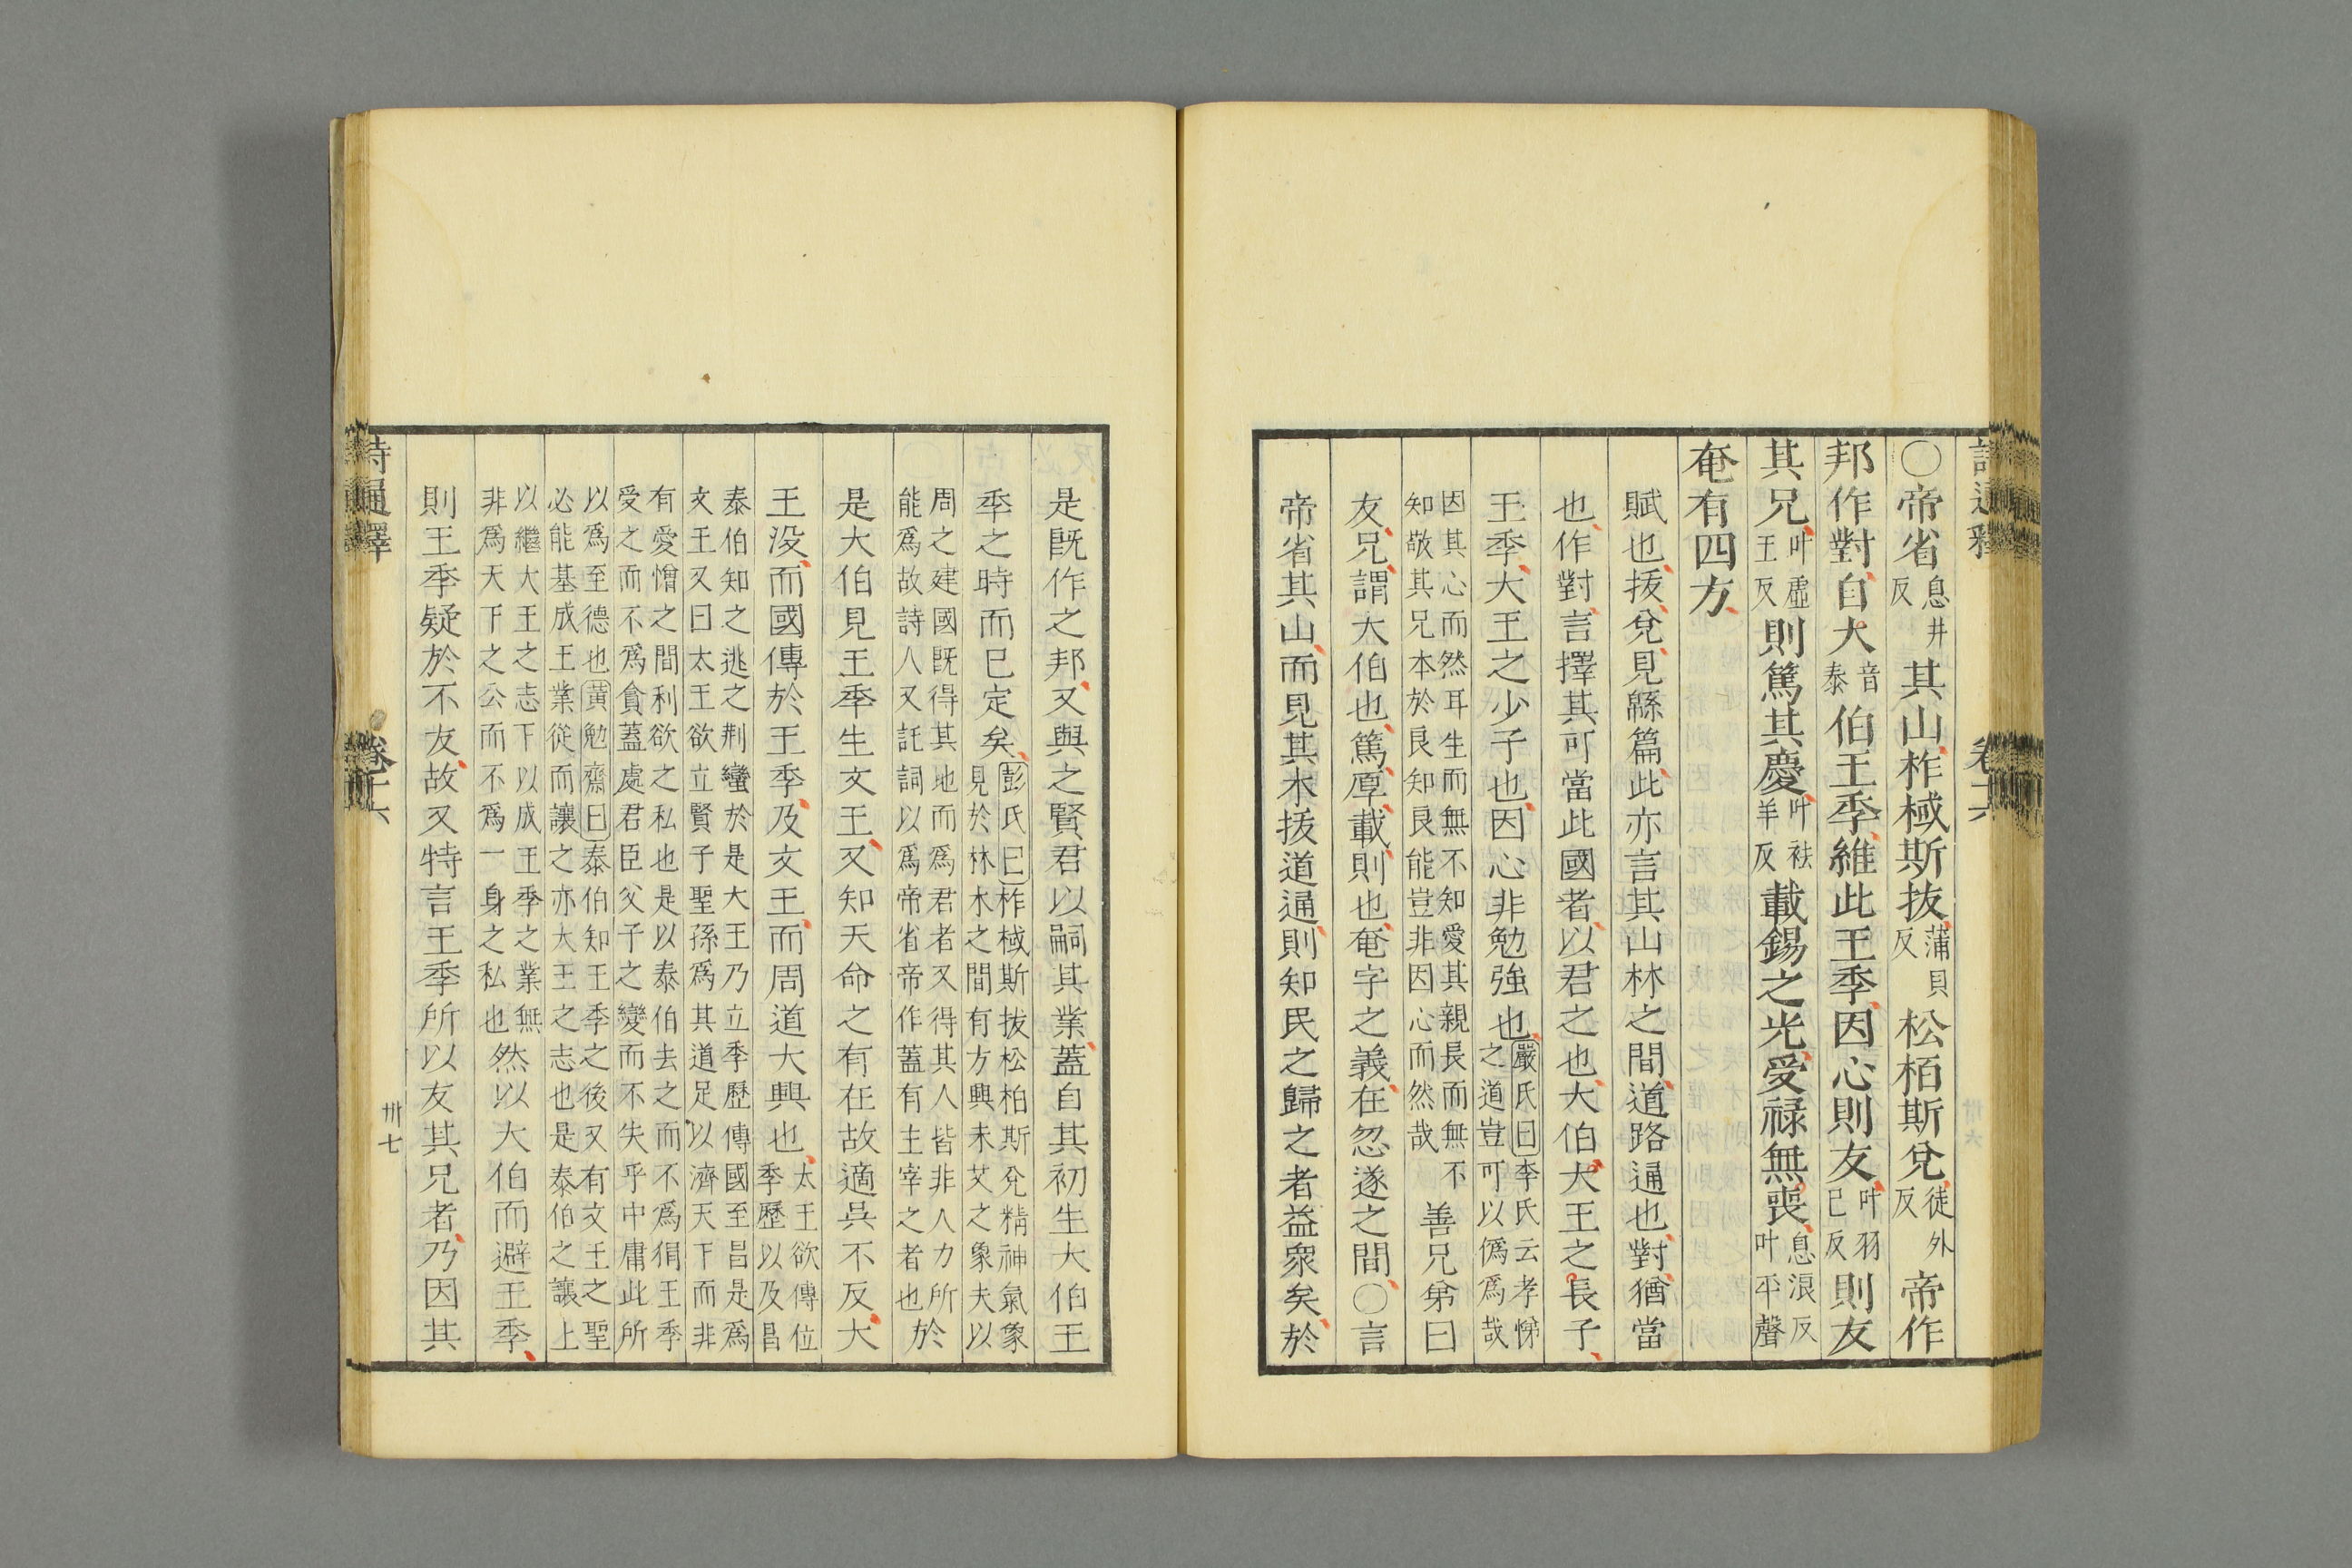 〇帝省息井反其山柞棫斯拔蒲貝反松栢斯兌徒外反帝作
邦作對自大音泰伯王季維此王季因心則友叶羽己反則友
其兄叶虛王反則篤其慶叶袪羊反載錫之光受祿無喪息浪反叶平聲
奄有四方
賦也拔兌見緜篇此亦言其山林之間道路通也對猶當
也作對言擇其可當此國者以君之也大伯大王之長子
王季大王之少子也因心非勉強也嚴氏曰李氏云孝悌之道豈可以僞爲哉
因其心而然耳生而無不知愛其親長而無不知敬其兄本於良知良能豈非因心而然哉善兄弟曰
友兄謂大伯也篤厚載則也奄字之義在忽遂之間〇言
帝省其山而見其木拔道通則知民之歸之者益衆矣於
是旣作之邦又與之賢君以嗣其業蓋自其初生大伯王
季之時而已定矣彭氏曰柞棫斯拔松柏斯兌精神氣象見於林木之間有方興未艾之象夫以
周之建國旣得其地而爲君者又得其人皆非人力所能爲故詩人又託詞以爲帝省帝作蓋有主宰之者也於
是大伯見王季生文王又知天命之有在故適吳不反大
王没而國傳於王季及文王而周道大興也太王欲傳位季歷以及昌
泰伯知之逃之荆蠻於是大王乃立季歷傳國至昌是爲文王又曰太王欲立賢子聖孫爲其道足以濟天下而非
有愛憎之間利欲之私也是以泰伯去之而不爲狷王季受之而不爲貪蓋處君臣父子之變而不失乎中庸此所
以爲至德也黃勉齋曰泰伯知王季之後又有文王之聖必能基成王業從而讓之亦大王之志也是泰伯之讓上
以繼大王之志下以成王季之業無非爲天下之公而不爲一身之私也然以大伯而避王季
則王季疑於不友故又特言王季所以友其兄者乃因其
詩通釋
卷十六
卅七